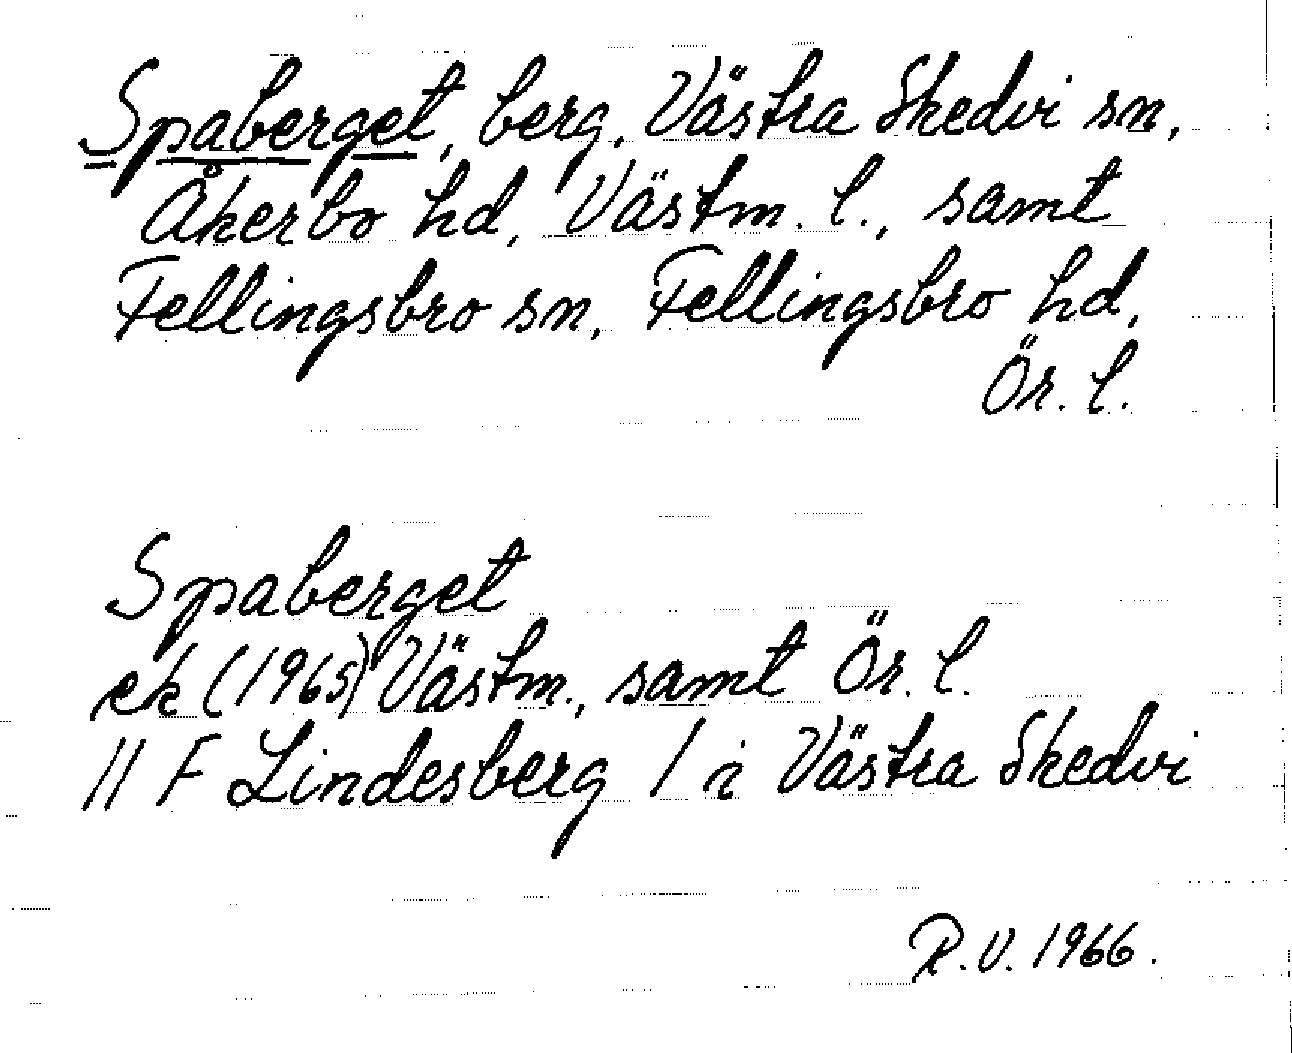 Spaberget, berg, Västra Skedvi sn,
Åkerbo hd, Västm. l., samt
Fellingsbro sn, Fellingsbro hd,
Ör. l.
Spaberget
ek (1965) Västm., samt Ör. l.
11 F Lindesberg 1 i Västra Skedvi
R.V. 1966.